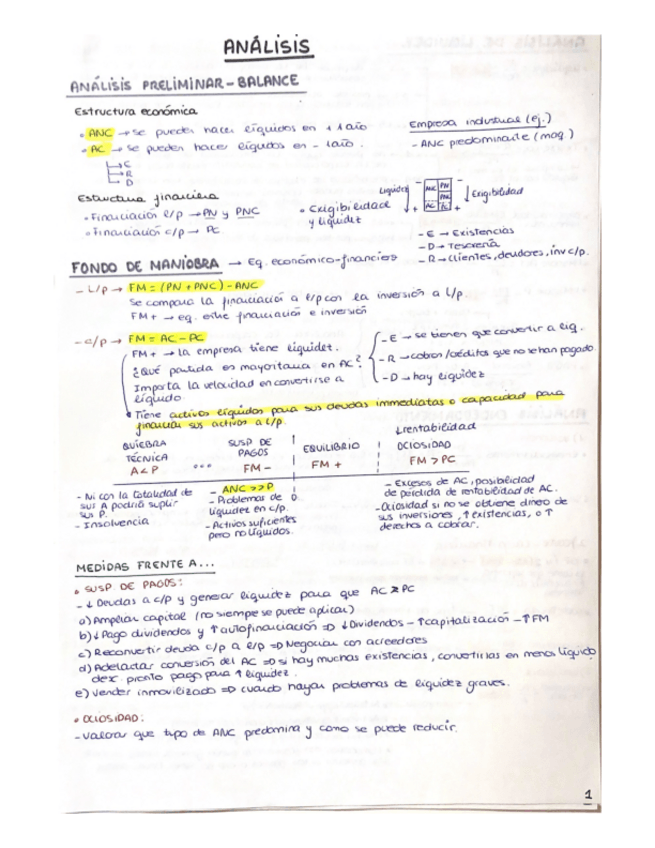 ANÁLISIS
ANÁLISIS PRELIMINAR - BALANCE
Estructura económica
• ANC → se pueden hacer líquidos en + 1 año
• AC → se pueden hacer líquidos en - 1 año.
→ E
→ R
→ D
Empresa industrial (ej.)
- ANC predominante (maq.)
Estructura financiera
• Financiación l/p → PN y PNC
• Financiación c/p → PC
• Exigibilidad
y liquidez
Liquidez
- ANC PN -
PNC
+ AC PC +
Exigibilidad
- E → Existencias
- D → Tesorería
- R → Clientes, deudores, inv c/p.
FONDO DE MANIOBRA → Eq. económico-financiero
- L/p → FM = (PN + PNC) - ANC
Se compara la financiación a l/p con la inversión a l/p.
FM+ → eq. entre financiación e inversión
- c/p → FM = AC - PC
FM+ → la empresa tiene liquidez.
¿Qué partida es mayoritaria en AC?
Importa la velocidad en convertirse a
líquido
- E → se tienen que convertir a liq.
- R → cobros/créditos que no se han pagado
- D → hay liquidez
• Tiene activos líquidos para sus deudas inmediatas o capacidad para
financiar sus activos a c/p.
↓rentabilidad
QUIEBRA
TÉCNICA
A < P
...
SUSP DE
PAGOS
FM -
EQUILIBRIO
FM +
OCIOSIDAD
FM > PC
- Ni con la totalidad de
sus A podría suplir
sus P.
- Insolvencia
- ANC >> P
- Problemas de
liquidez en c/p.
- Activos suficientes
pero no líquidos.
- Excesos de AC, posibilidad
de pérdida de rentabilidad de AC.
- Ociosidad si no se obtiene dinero de
sus inversiones, ↑ existencias, o ↑
derechos a cobrar.
MEDIDAS FRENTE A...
• SUSP DE PAGOS:
- ↓ Deudas a c/p y generar liquidez para que AC ≥ PC
a) Ampliar capital (no siempre se puede aplicar)
b) ↓ Pago dividendos y ↑ autofinanciación ⇒ ↓ Dividendos - ↑ capitalización - ↑ FM
c) Reconvertir deuda c/p a l/p ⇒ Negociar con acreedores
d) Adelantar conversión del AC ⇒ si hay muchas existencias, convertirlas en menos líquido
pronto pago para ↑ liquidez.
e) Vender inmovilizado ⇒ cuando hayan problemas de liquidez graves.
• OCIOSIDAD:
- Valorar que tipo de ANC predomina y como se puede reducir.
1